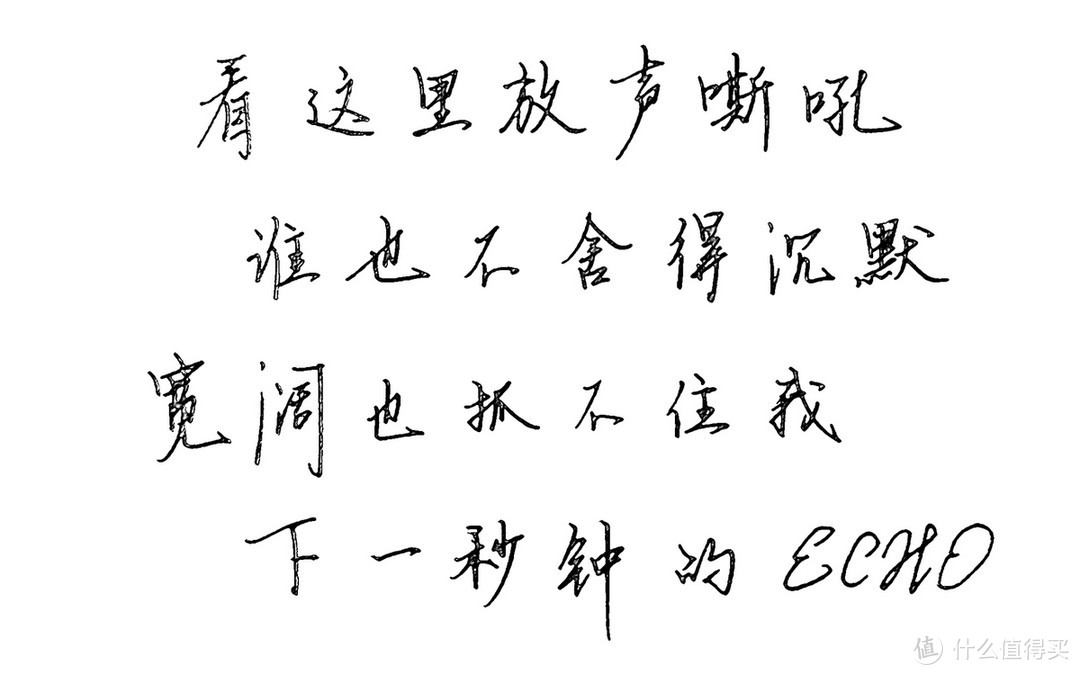 看这里放声嘶吼
谁也不舍得沉默
宽阔也抓不住我
下一秒钟的ECHO
值 什么值得买